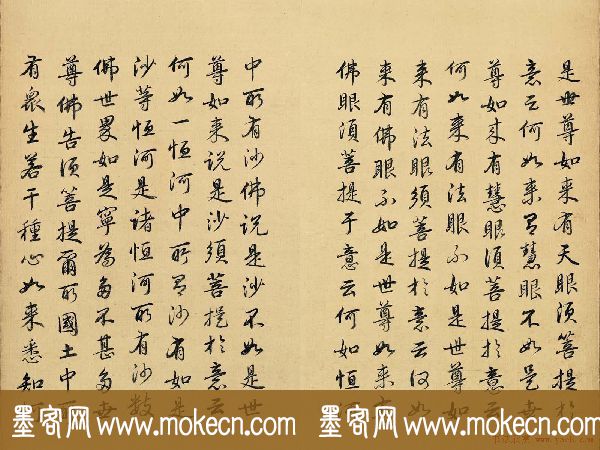 是世尊如来有天眼須菩提於
意云何如来有慧眼不如是世
尊如来有慧眼須菩提於意云
何如来有法眼不如是世尊如
来有法眼須菩提於意云何如
来有佛眼不如是世尊如来有
佛眼須菩提于意云何如恒河
中所有沙佛説是沙不如是世
尊如来説是沙須菩提於意云
何如一恒河中所有沙有如是
沙等恒河是諸恒河所有沙數
佛世界如是寧為多不甚多世
尊佛告須菩提爾所國土中所
有衆生若干種心如来悉知
墨客网 www.mokecn.com
墨客网 www.mokecn.com